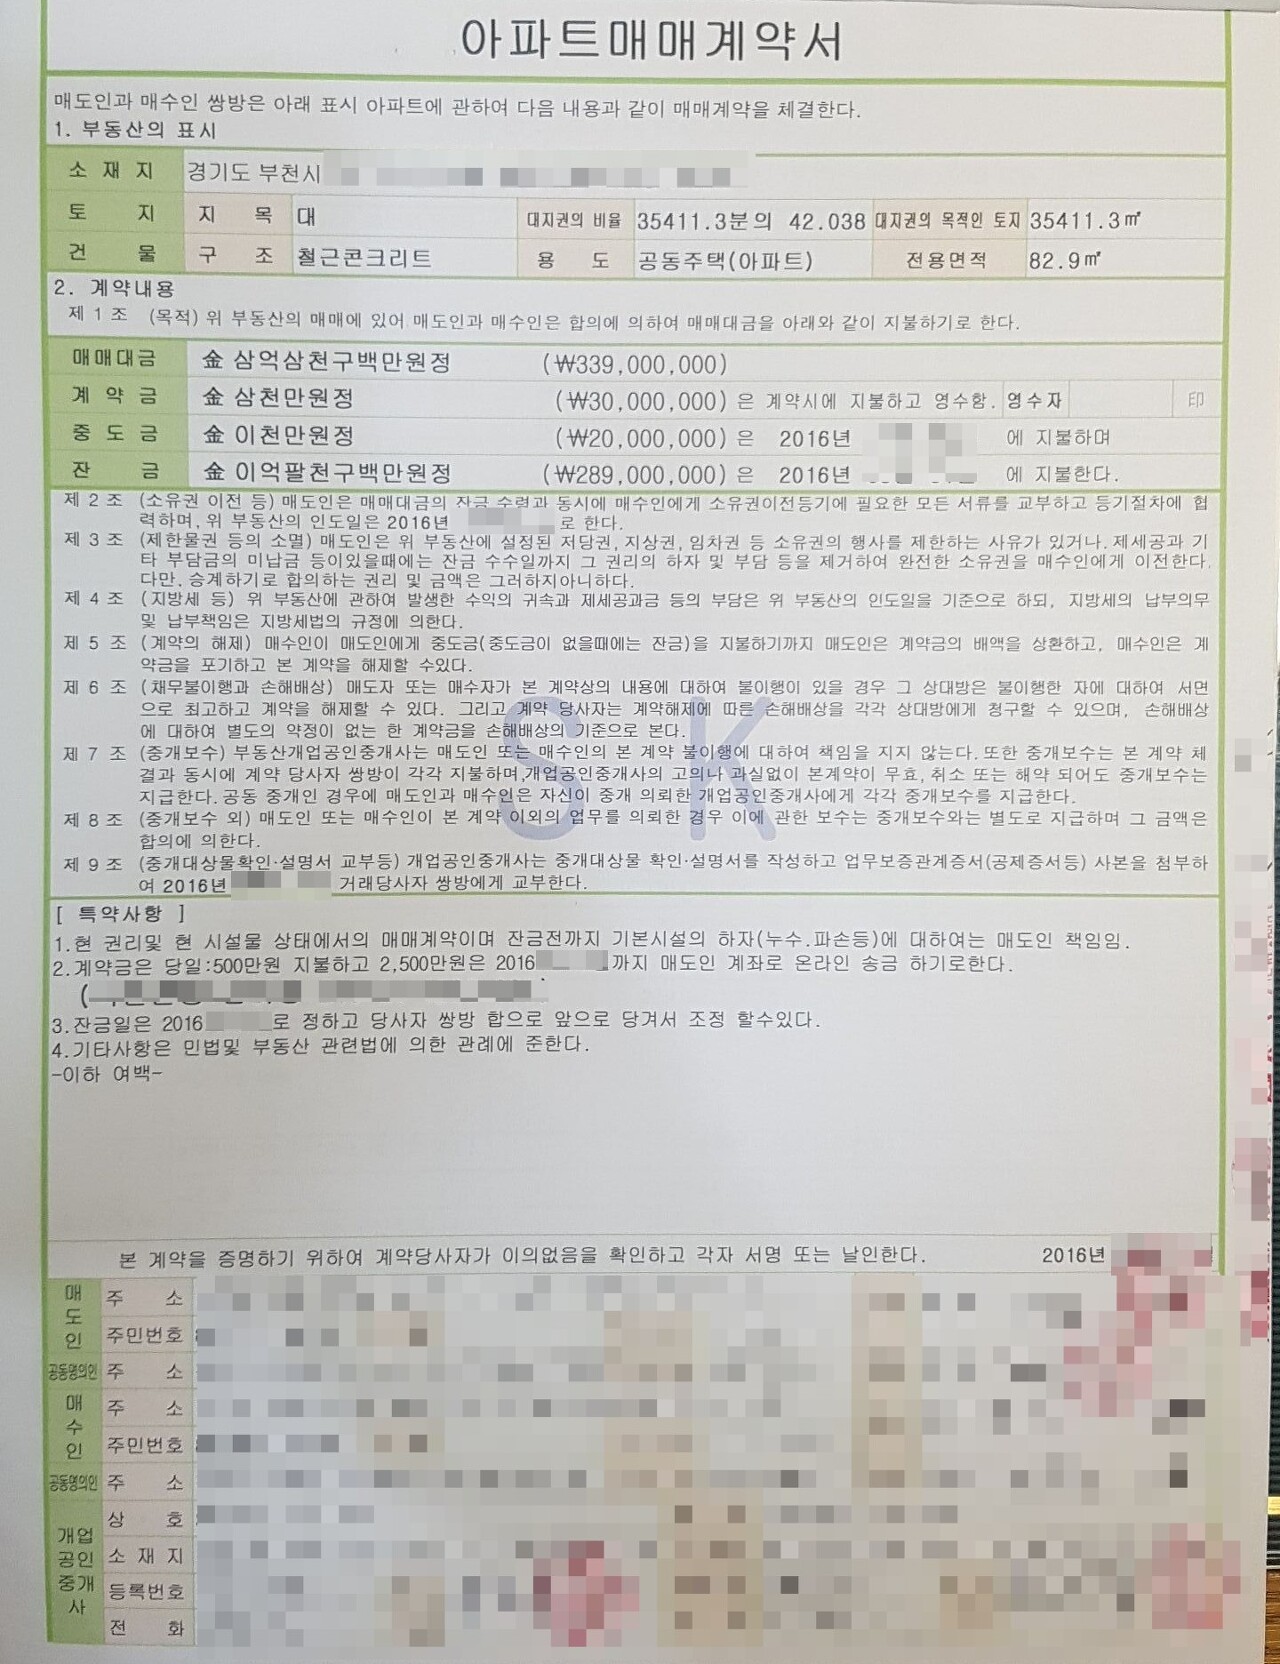 아파트매매계약서
매도인과 매수인 쌍방은 아래 표시 아파트에 관하여 다음 내용과 같이 매매계약을 체결한다.
1. 부동산의 표시
소 재 지 경기도 부천시
토 지 지 목 대 대지권의 비율 35411.3분의 42.038 대지권의 목적인 토지 35411.3㎡
건 물 구 조 철근콘크리트 용 도 공동주택(아파트) 전용면적 82.9㎡
2. 계약내용
제 1 조 (목적) 위 부동산의 매매에 있어 매도인과 매수인은 합의에 의하여 매매대금을 아래와 같이 지불하기로 한다.
매매대금 金 삼억삼천구백만원정 (₩339,000,000)
계 약 금 金 삼천만원정 (₩30,000,000) 은 계약시에 지불하고 영수함. 영수자 印
중 도 금 金 이천만원정 (₩20,000,000) 은 2016년 에 지불하며
잔 금 金 이억팔천구백만원정 (₩289,000,000) 은 2016년 에 지불한다.
제 2 조 (소유권 이전 등) 매도인은 매매대금의 잔금 수령과 동시에 매수인에게 소유권이전등기에 필요한 모든 서류를 교부하고 등기절차에 협
력하며, 위 부동산의 인도일은 2016년 로 한다.
제 3 조 (제한물권 등의 소멸) 매도인은 위 부동산에 설정된 저당권, 지상권, 임차권 등 소유권의 행사를 제한하는 사유가 있거나. 제세공과 기
타 부담금의 미납금 등이있을때에는 잔금 수수일까지 그 권리의 하자 및 부담 등을 제거하여 완전한 소유권을 매수인에게 이전한다.
다만. 승계하기로 합의하는 권리 및 금액은 그러하지아니하다.
제 4 조 (지방세 등) 위 부동산에 관하여 발생한 수익의 귀속과 제세공과금 등의 부담은 위 부동산의 인도일을 기준으로 하되, 지방세의 납부의무
및 납부책임은 지방세법의 규정에 의한다.
제 5 조 (계약의 해제) 매수인이 매도인에게 중도금(중도금이 없을때에는 잔금)을 지불하기까지 매도인은 계약금의 배액을 상환하고, 매수인은 계
약금을 포기하고 본 계약을 해제할 수있다.
제 6 조 (채무불이행과 손해배상) 매도자 또는 매수자가 본 계약상의 내용에 대하여 불이행이 있을 경우 그 상대방은 불이행한 자에 대하여 서면
으로 최고하고 계약을 해제할 수 있다. 그리고 계약 당사자는 계약해제에 따른 손해배상을 각각 상대방에게 청구할 수 있으며, 손해배상
에 대하여 별도의 약정이 없는 한 계약금을 손해배상의 기준으로 본다.
제 7 조 (중개보수) 부동산개업공인중개사는 매도인 또는 매수인의 본 계약 불이행에 대하여 책임을 지지 않는다. 또한 중개보수는 본 계약 체
결과 동시에 계약 당사자 쌍방이 각각 지불하며,개업공인중개사의 고의나 과실없이 본계약이 무효, 취소 또는 해약 되어도 중개보수는
지급한다. 공동 중개인 경우에 매도인과 매수인은 자신이 중개 의뢰한 개업공인중개사에게 각각 중개보수를 지급한다.
제 8 조 (중개보수 외) 매도인 또는 매수인이 본 계약 이외의 업무를 의뢰한 경우 이에 관한 보수는 중개보수와는 별도로 지급하며 그 금액은
합의에 의한다.
제 9 조 (중개대상물확인·설명서 교부등) 개업공인중개사는 중개대상물 확인·설명서를 작성하고 업무보증관계증서(공제증서등) 사본을 첨부하
여 2016년 거래당사자 쌍방에게 교부한다.
SK
[ 특약사항 ]
1.현 권리및 현 시설물 상태에서의 매매계약이며 잔금전까지 기본시설의 하자(누수.파손등)에 대하여는 매도인 책임임.
2.계약금은 당일:500만원 지불하고 2,500만원은 2016 까지 매도인 계좌로 온라인 송금 하기로한다.
3.잔금일은 2016 로 정하고 당사자 쌍방 합으로 앞으로 당겨서 조정 할수있다.
4.기타사항은 민법및 부동산 관련법에 의한 관례에 준한다.
-이하 여백-
본 계약을 증명하기 위하여 계약당사자가 이의없음을 확인하고 각자 서명 또는 날인한다. 2016년
매도인 주 소
주민번호
공동명의인 주 소
매수인 주 소
주민번호
공동명의인 주 소
개업공인중개사 상 호
소 재 지
등록번호
전 화